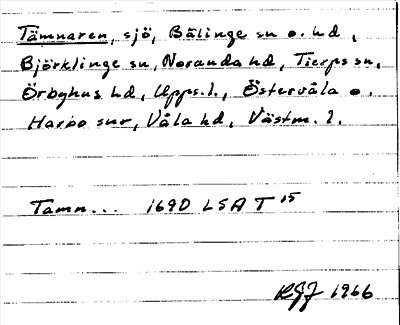 Tämnaren, sjö, Bälinge sn o. hd,
Björklinge sn, Norunda hd, Tierps sn,
Örbyhus hd, Upps. l., Östervåla o.
Harbo snr, Våla hd, Västm. l.
Tamn... 1690 LSA T 15
1966